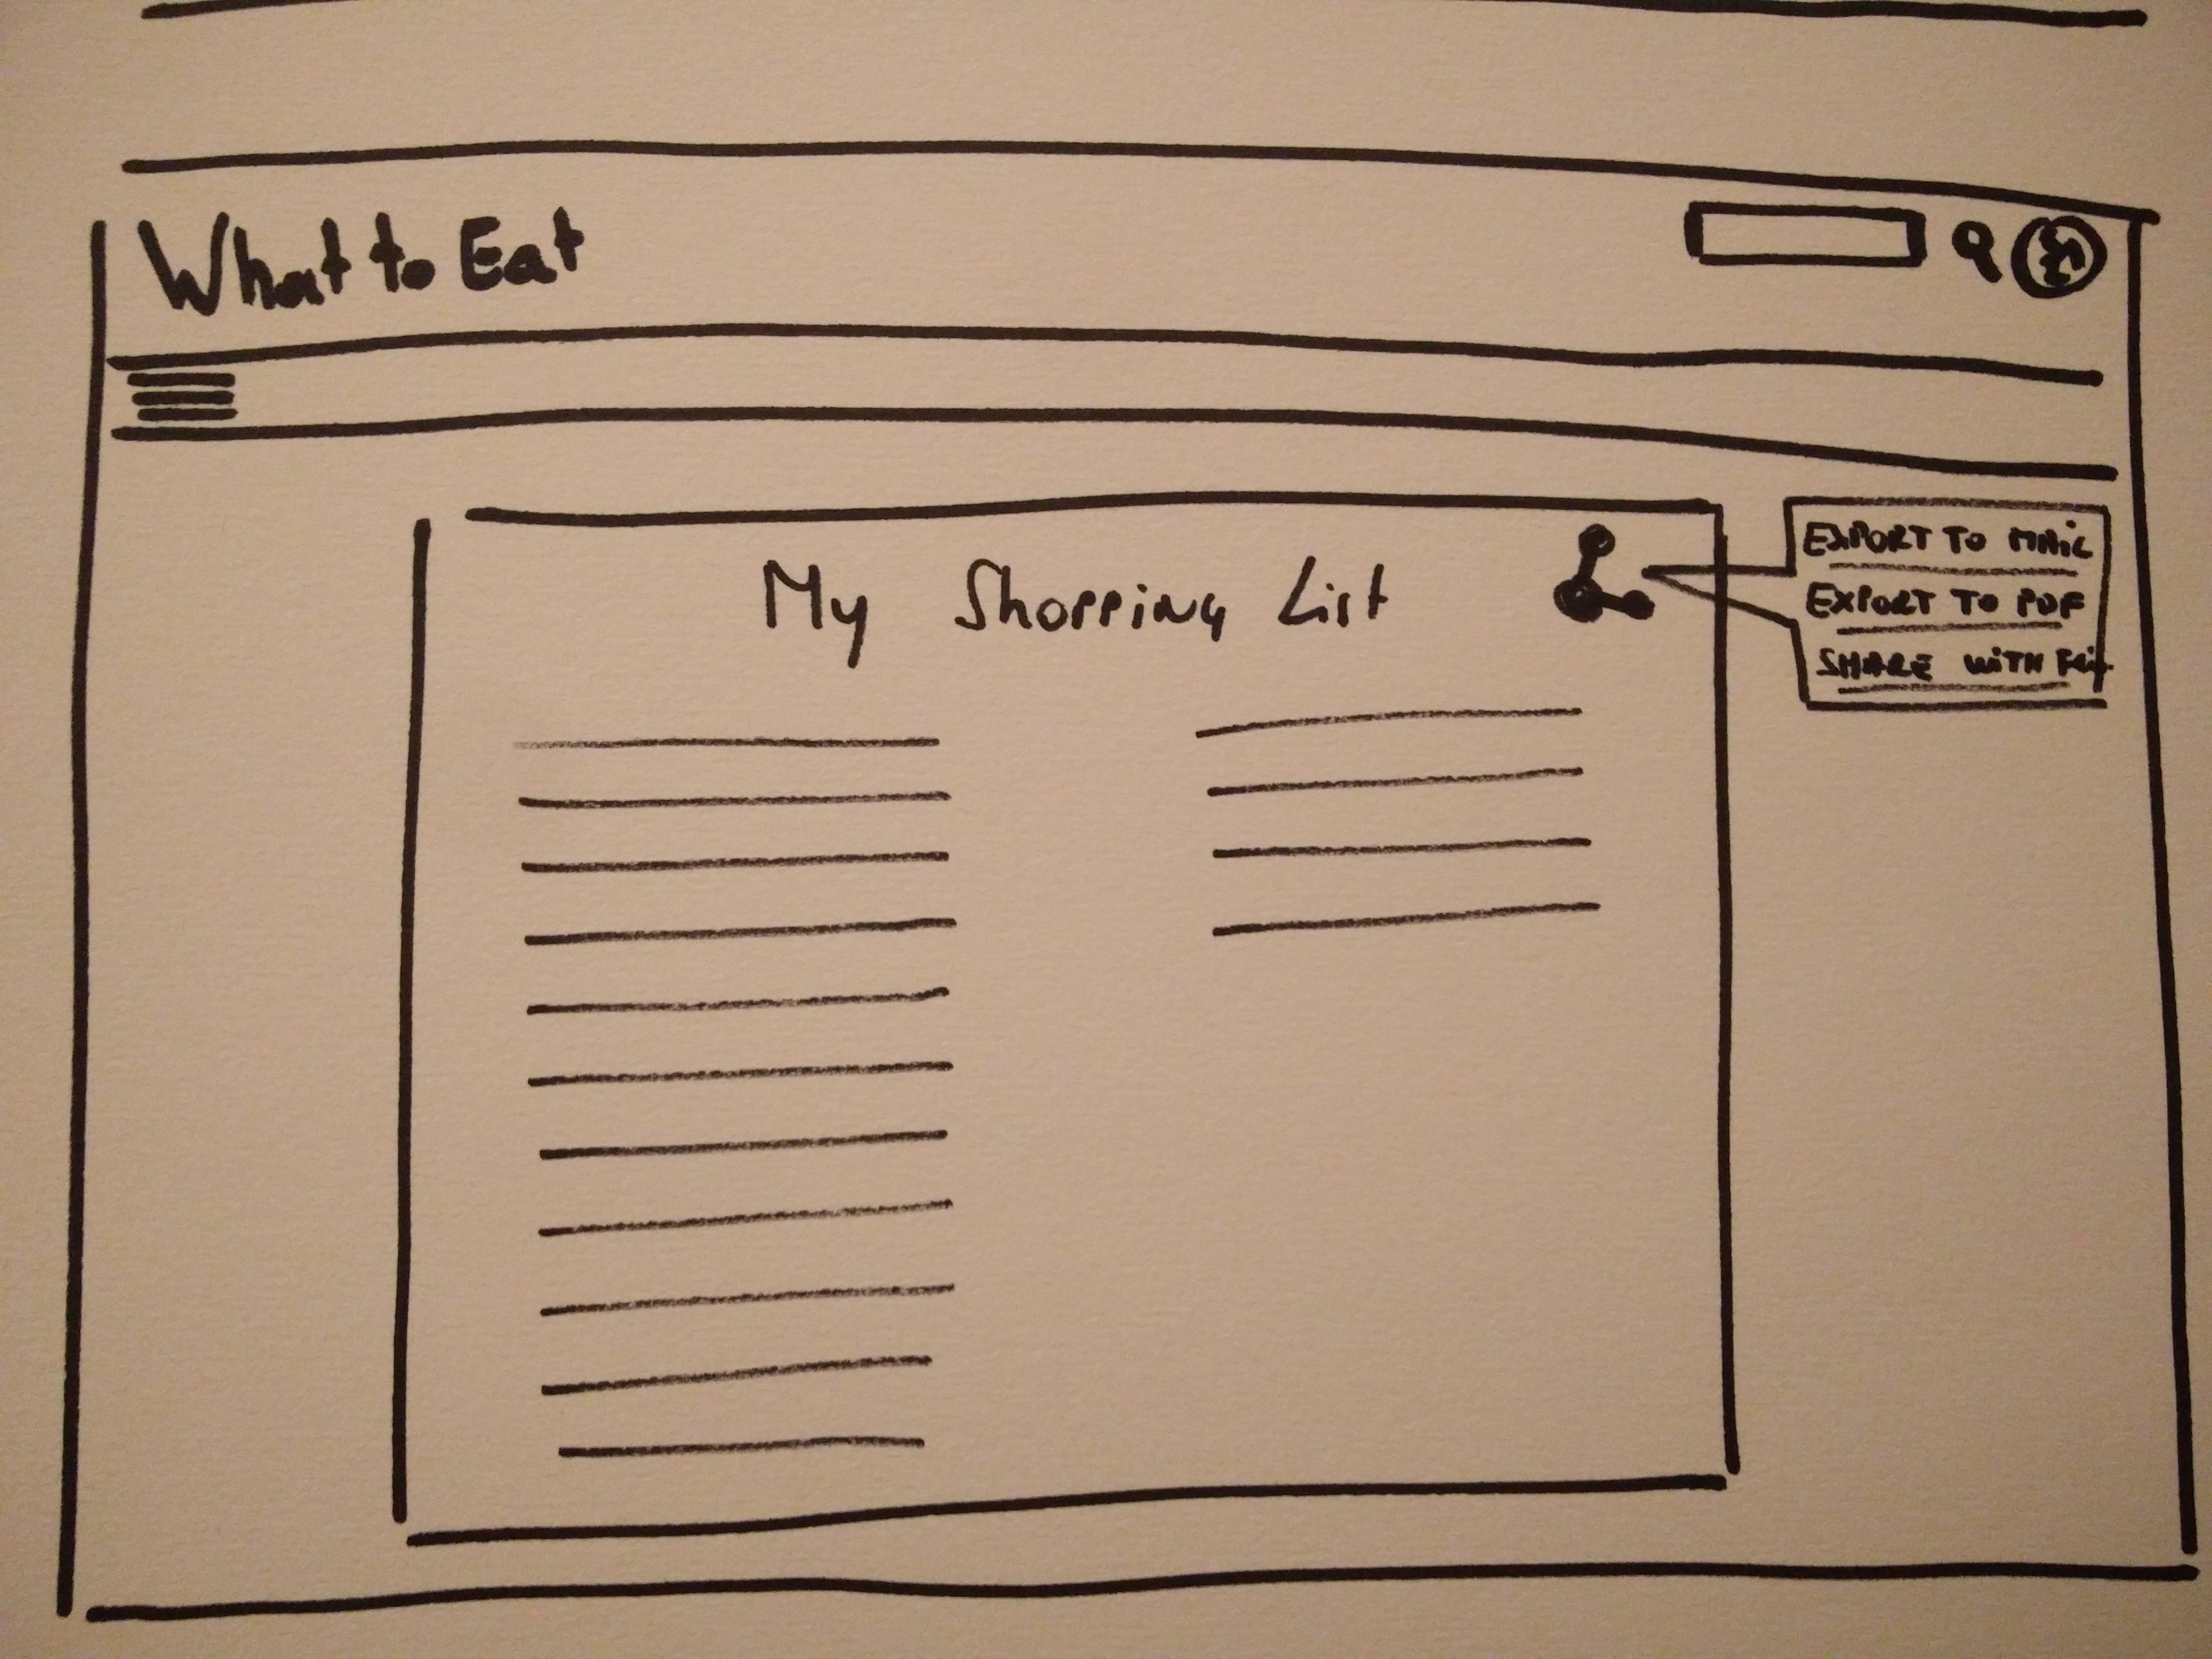 What to Eat
My Shopping List
EXPORT TO MAIL
EXPORT TO PDF
SHARE WITH